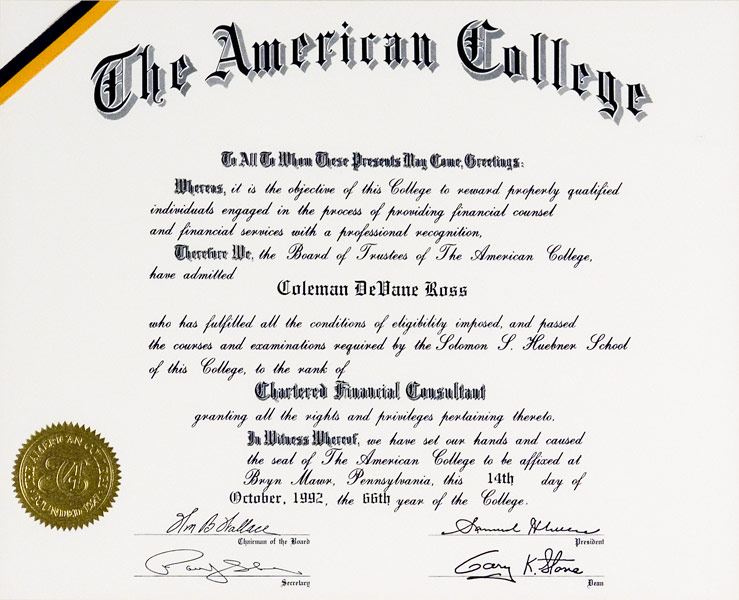 The American College
To All To Whom These Presents May Come, Greetings:
Whereas, it is the objective of this College to reward properly qualified
individuals engaged in the process of providing financial counsel
and financial services with a professional recognition,
Therefore We, the Board of Trustees of The American College,
have admitted
Coleman DeVane Ross
who has fulfilled all the conditions of eligibility imposed, and passed
the courses and examinations required by the Solomon S. Huebner School
of this College, to the rank of
Chartered Financial Consultant
granting all the rights and privileges pertaining thereto.
In Witness Whereof, we have set our hands and caused
the seal of The American College to be affixed at
Bryn Mawr, Pennsylvania, this 14th day of
October, 1992, the 66th year of the College.
THE AMERICAN COLLEGE
FOUNDED 1927
Wm B Wallace
Chairman of the Board
Samuel
President
Secretary
Gary K. Stone
Dean